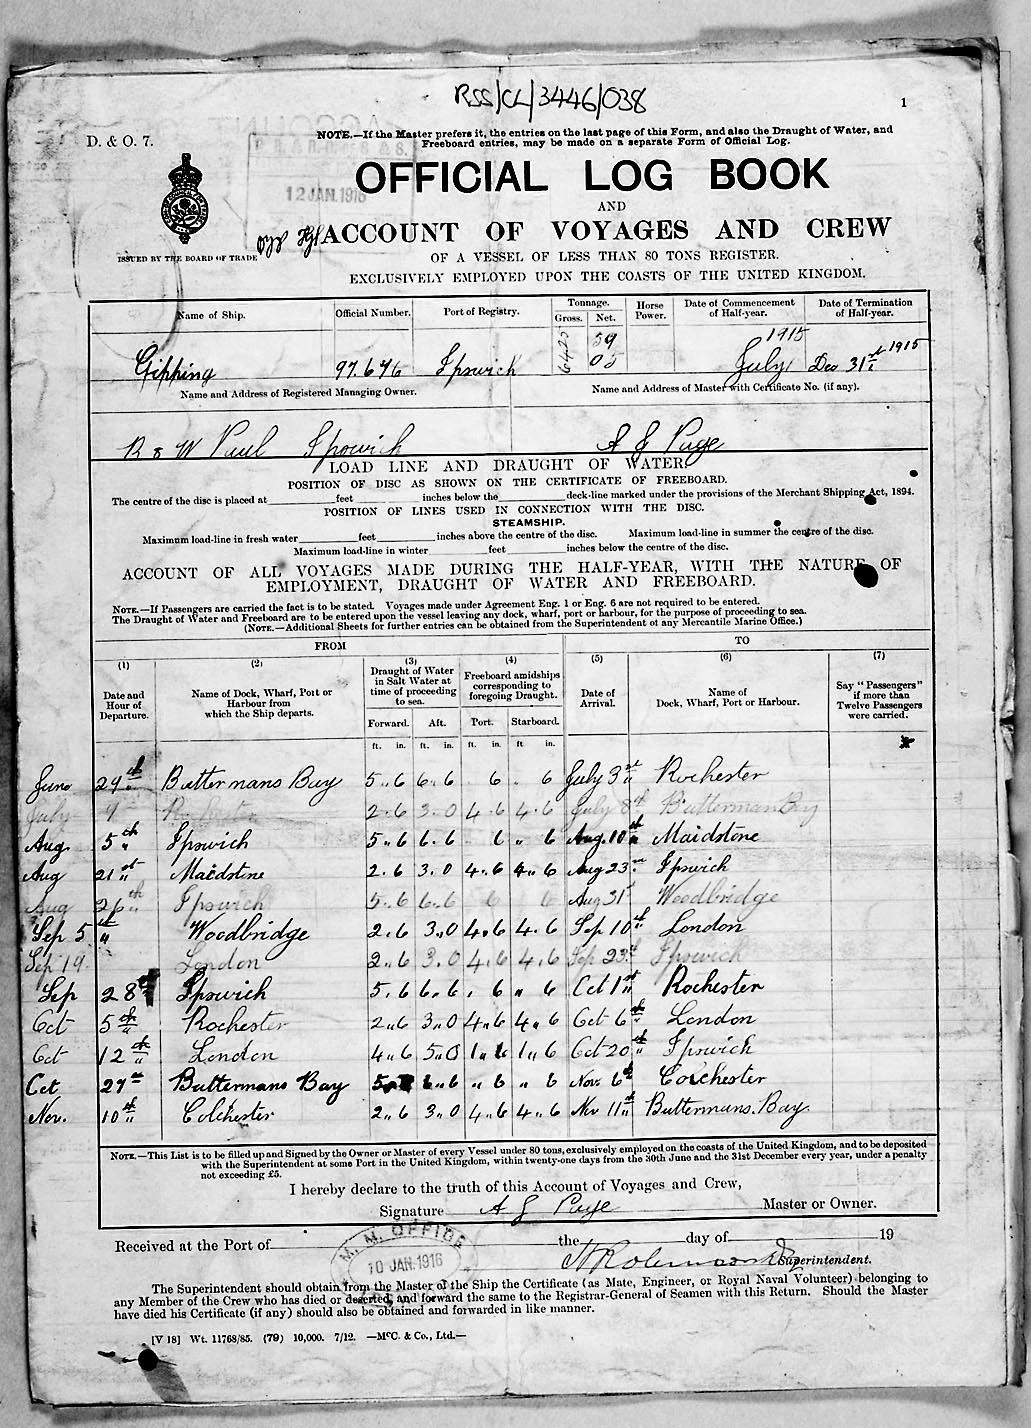 RSS/CL/3446/038
1
D. & O. 7.
NOTE.—If the Master prefers it, the entries on the last page of this Form, and also the Draught of Water, and
Freeboard entries, may be made on a separate Form of Official Log.
12 JAN. 1916
OFFICIAL LOG BOOK
AND
ACCOUNT OF VOYAGES AND CREW
ISSUED BY THE BOARD OF TRADE
OF A VESSEL OF LESS THAN 80 TONS REGISTER.
EXCLUSIVELY EMPLOYED UPON THE COASTS OF THE UNITED KINGDOM.
Name of Ship. Official Number. Port of Registry. Tonnage. Gross. Net. Horse Power. Date of Commencement of Half-year. Date of Termination of Half-year.
Gipping 97.676 Ipswich 64.25 59 02 1915 July 1 Dec 31st 1915
Name and Address of Registered Managing Owner. Name and Address of Master with Certificate No. (if any).
R & W Paul Ipswich A G Page
LOAD LINE AND DRAUGHT OF WATER
POSITION OF DISC AS SHOWN ON THE CERTIFICATE OF FREEBOARD.
The centre of the disc is placed at feet inches below the deck-line marked under the provisions of the Merchant Shipping Act, 1894.
POSITION OF LINES USED IN CONNECTION WITH THE DISC.
STEAMSHIP.
Maximum load-line in fresh water feet inches above the centre of the disc. Maximum load-line in summer the centre of the disc.
Maximum load-line in winter feet inches below the centre of the disc.
ACCOUNT OF ALL VOYAGES MADE DURING THE HALF-YEAR, WITH THE NATURE OF
EMPLOYMENT, DRAUGHT OF WATER AND FREEBOARD.
NOTE.—If Passengers are carried the fact is to be stated. Voyages made under Agreement Eng. 1 or Eng. 6 are not required to be entered.
The Draught of Water and Freeboard are to be entered upon the vessel leaving any dock, wharf, port or harbour, for the purpose of proceeding to sea.
(NOTE.—Additional Sheets for further entries can be obtained from the Superintendent of any Mercantile Marine Office.)
FROM TO
(1) (2) (3) (4) (5) (6) (7)
Date and Hour of Departure. Name of Dock, Wharf, Port or Harbour from which the Ship departs. Draught of Water in Salt Water at time of proceeding to sea. Freeboard amidships corresponding to foregoing Draught. Date of Arrival. Name of Dock, Wharf, Port or Harbour. Say "Passengers" if more than Twelve Passengers were carried.
Forward. Aft. Port. Starboard.
ft. in. ft. in. ft. in. ft in.
June 29th Buttermans Bay 5.6 6.6 6 . 6 July 3rd Rochester
July 9 Rochester 2.6 3.0 4.6 4.6 July 8th Butterman Bay
Aug. 5th Ipswich 5.6 6.6 6 " 6 Aug. 10th Maidstone
Aug 21st Maidstone 2.6 3.0 4.6 4.6 Aug 23 Ipswich
Aug 26th Ipswich 5.6 6.6 6 6 Aug 31 Woodbridge
Sep 5th Woodbridge 2.6 3.0 4.6 4.6 Sep 10th London
Sep 19. London 2.6 3.0 4.6 4.6 Sep 23rd Ipswich
Sep 28th Ipswich 5.6 6.6 . 6 " 6 Oct 1st Rochester
Oct 5th Rochester 2.6 3.0 4.6 4.6 Oct 6th London
Oct 12th London 4.6 5.0 1.6 1.6 Oct 20th Ipswich
Oct 27th Buttermans Bay 5 6.6 " 6 " 6 Nov. 6th Colchester
Nov. 10th Colchester 2.6 3.0 4.6 4.6 Nov 11th Buttermans. Bay.
NOTE.—This List is to be filled up and Signed by the Owner or Master of every Vessel under 80 tons, exclusively employed on the coasts of the United Kingdom, and to be deposited
with the Superintendent at some Port in the United Kingdom, within twenty-one days from the 30th June and the 31st December every year, under a penalty
not exceeding £5.
I hereby declare to the truth of this Account of Voyages and Crew,
Signature A G Page Master or Owner.
Received at the Port of the day of 19
M. M. OFFICE
10 JAN. 1916
Superintendent.
The Superintendent should obtain from the Master of the Ship the Certificate (as Mate, Engineer, or Royal Naval Volunteer) belonging to
any Member of the Crew who has died or deserted, and forward the same to the Registrar-General of Seamen with this Return. Should the Master
have died his Certificate (if any) should also be obtained and forwarded in like manner.
[V 18] Wt. 11768/85. (79) 10,000. 7/12. —McC. & Co., Ltd.—